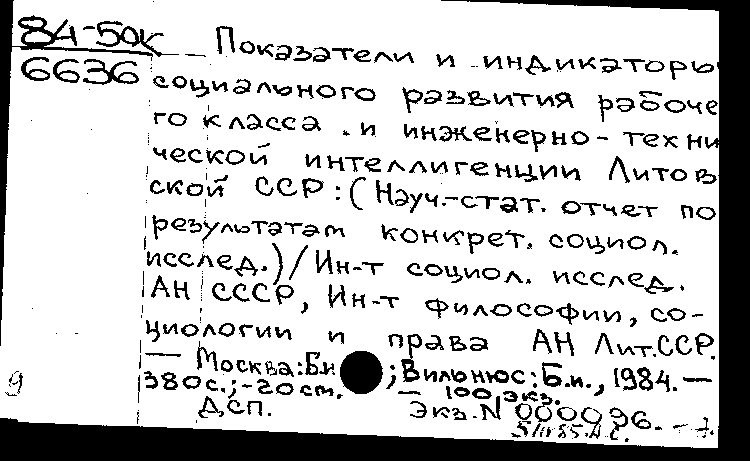 84-50к
6636
Показатели и индикаторы
социального развития рабоче
го класса и инженерно-техни
ческой интеллигенции Литов
ской ССР: (Науч.-стат. отчет по
результатам конкрет. социол.
исслед.) / Ин-т социол. исслед.
АН СССР, Ин-т философии, со-
циологии и права АН Лит.ССР.
— Москва: Б.и ; Вильнюс: Б.и., 1984. —
380с.; -20 см. — 100 экз.
ДСП. Экз. N 000096. —
9